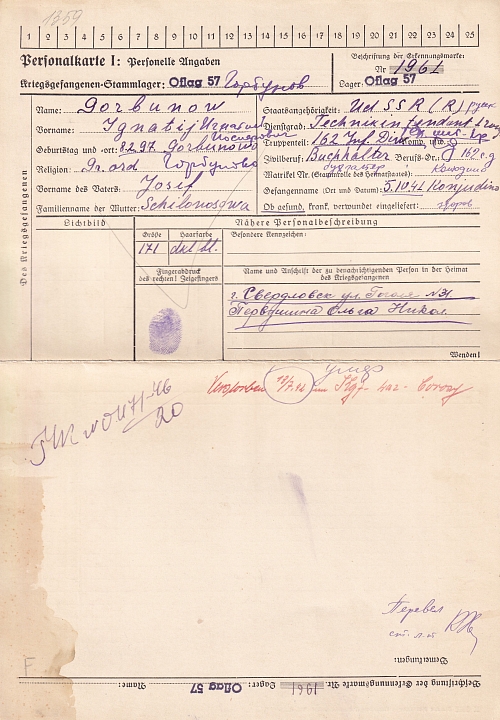 1359
1 2 3 4 5 6 7 8 9 10 11 12 13 14 15 16 17 18 19 20 21 22 23 24 25
Personalkarte I: Personelle Angaben
Beschriftung der Erkennungsmarke:
Nr. 1961
Kriegsgefangenen-Stammlager: Oflag 57 Горбунов
Lager: Oflag 57
Des Kriegsgefangenen
Name: Gorbunow
Staatsangehörigkeit: UdSSR (R) русск
Vorname: Ignatij Игнатий
Иосифович
Dienstgrad: Technikintendant I
Truppenteil: 162 Inf. Div.
Komp. usw.:
Geburtstag und -ort: 8.2.97 Gorbunowo
Горбуново
Zivilberuf: Buchhalter Berufs-Gr.:
бухгалтер
Religion: Gr. ord
Matrikel Nr. (Stammrolle des Heimatstaates):
Vorname des Vaters: Josef
Gefangennahme (Ort und Datum): 5.10.41
Familienname der Mutter:
Ob gesund, krank, verwundet eingeliefert: здоров
Lichtbild
Nähere Personalbeschreibung
Größe Haarfarbe
171
Besondere Kennzeichen:
Fingerabdruck
des rechten! Zeigefingers
Name und Anschrift der zu benachrichtigenden Person in der Heimat
des Kriegsgefangenen
г. Свердловск ул. Гоголя №31
Первушина Ольга Никол.
Wenden!
умер
Verstorben im Kgf.-Laz.
20
Перевел
Bemerkungen:
Beschriftung der Erkennungsmarke Nr. 1961 Lager: Oflag 57 Name: